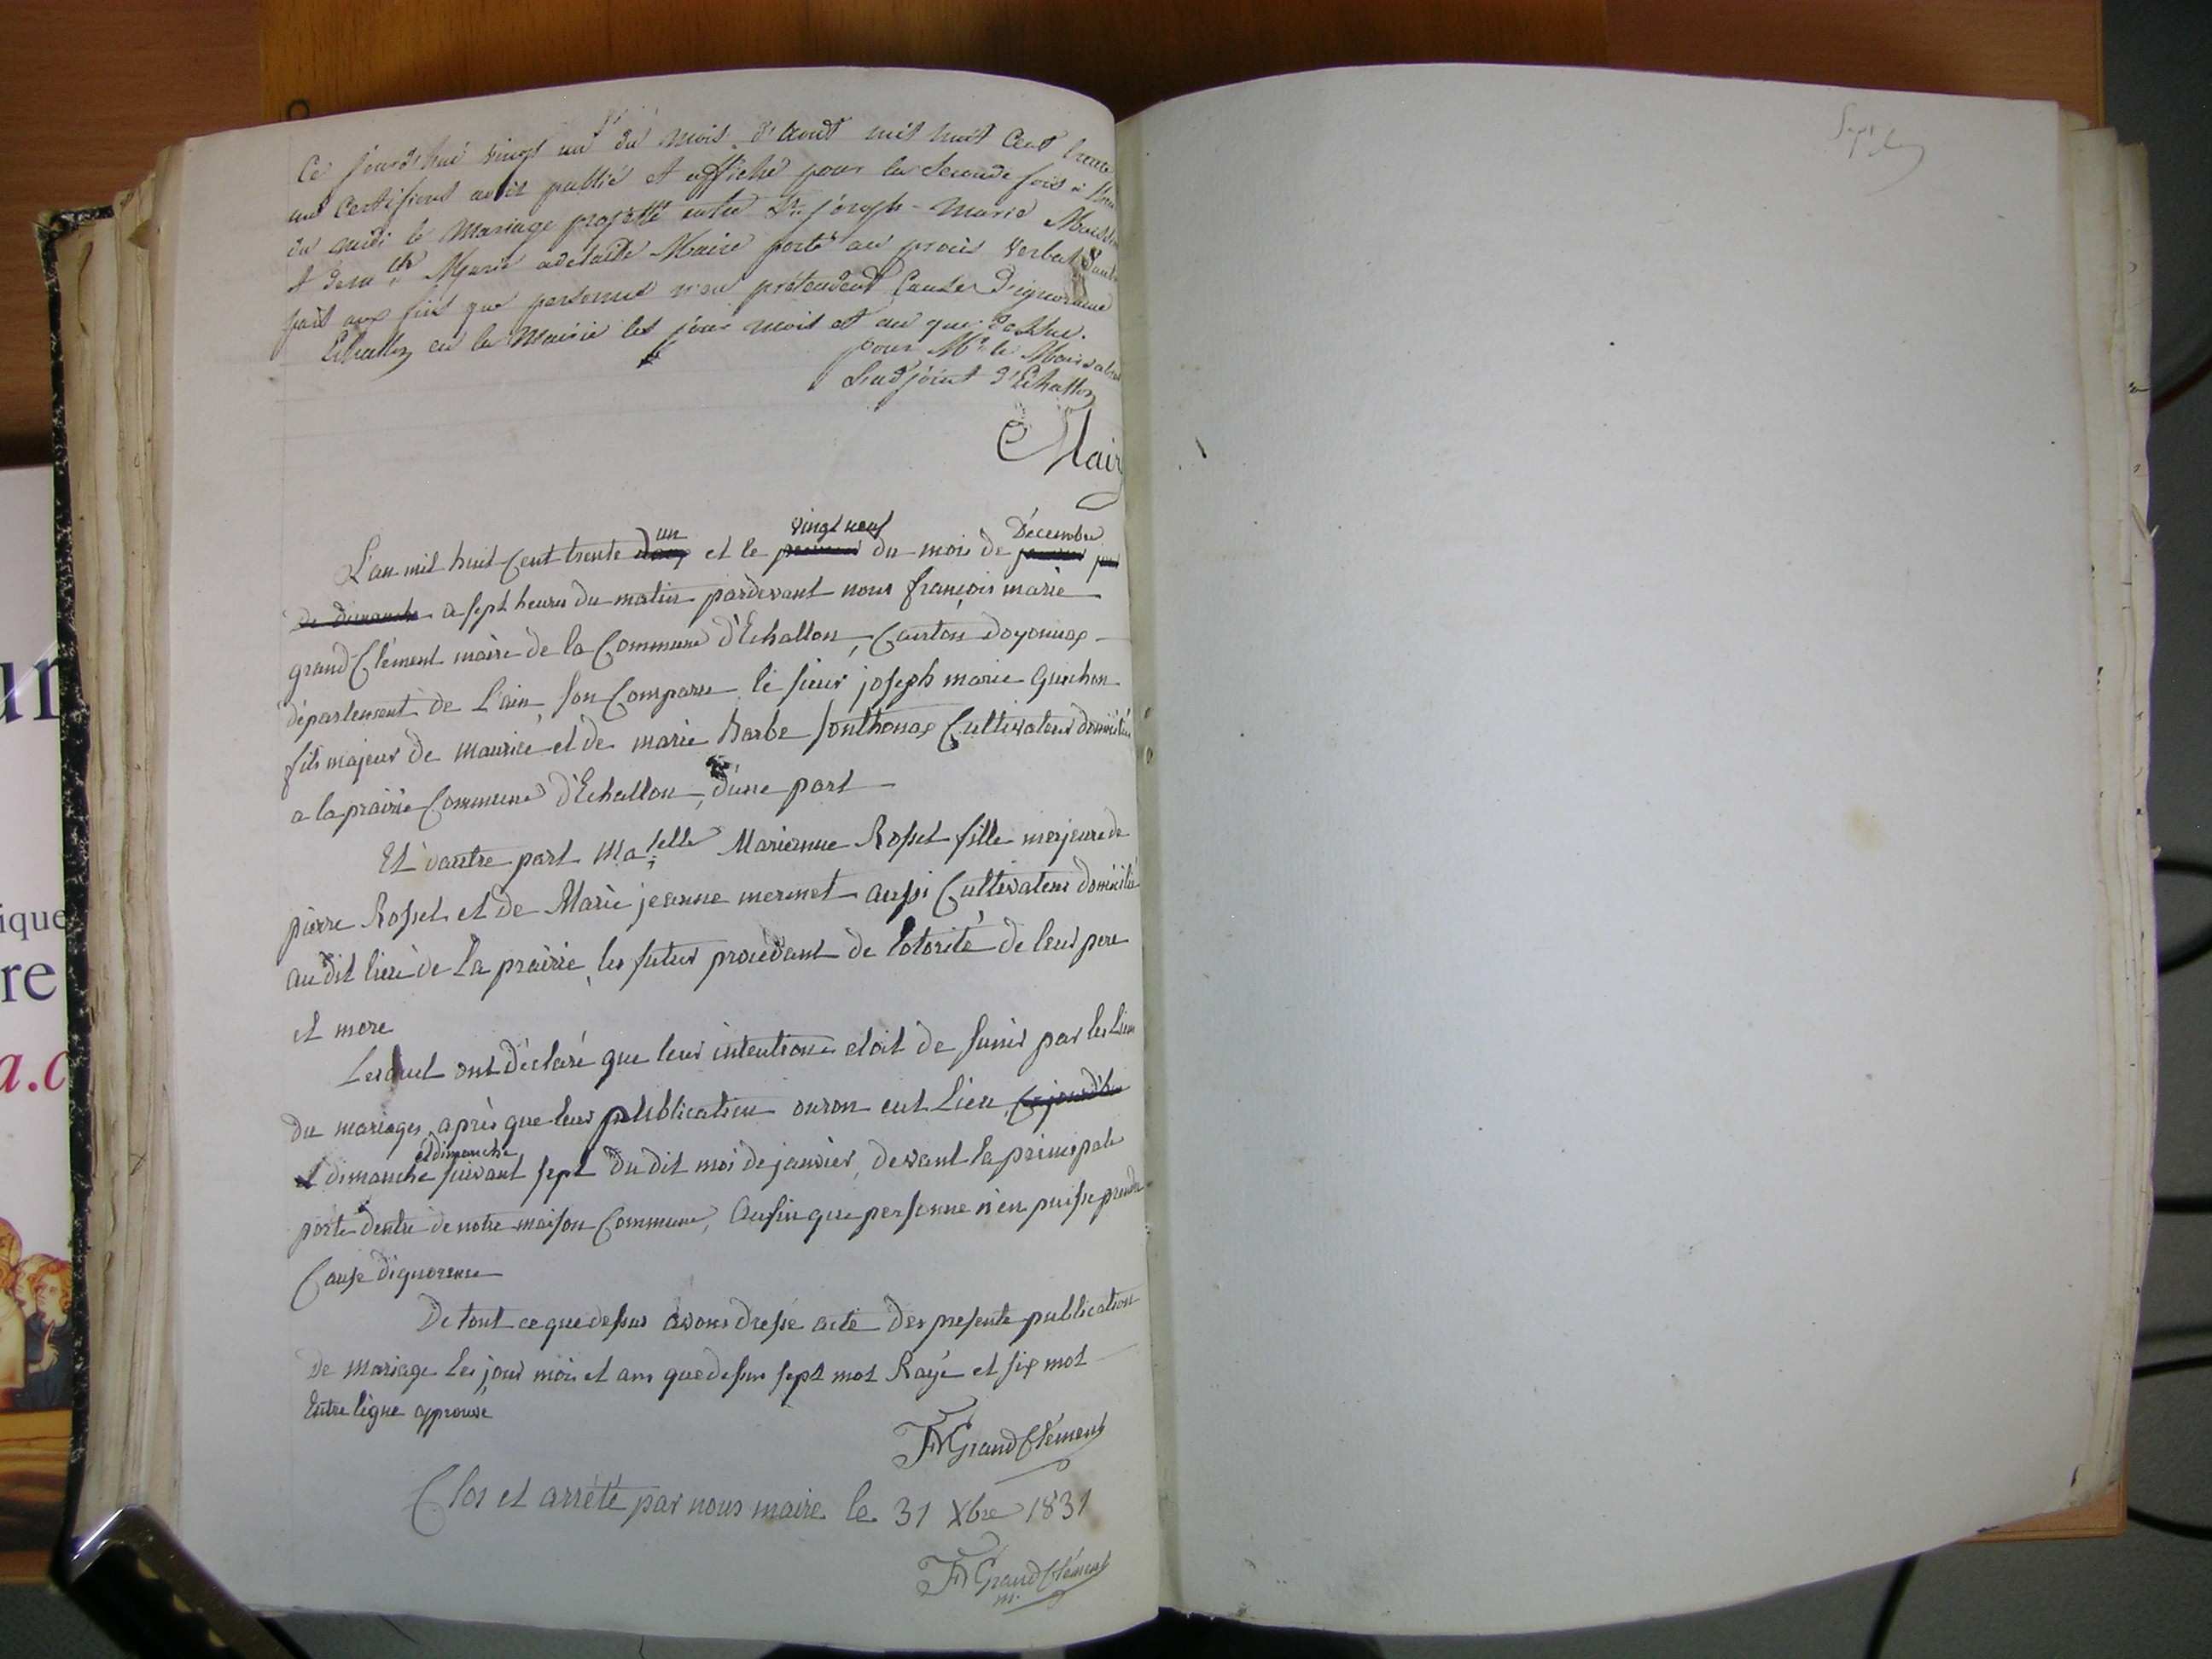 Ce jourd'hui vingt un du mois d'aout mil huit Cent trente
un Certifions avoir publié et affiché pour la Seconde fois à
du midi le Mariage projetté entre Sr. joseph-Marie
& Demlle Marie adelaïde Maire porté au procès verbal
fait aux fins que personnes n'en prétendent Causes d'ignorance
Echallon en la Mairie les jour mois et an que dessus.
pour Mr. le Maire
L'adjoint d'Echallon
Mair
un vingt neuf Décembre
L'an mil huit Cent trente deux et le premier du mois de janvier jour
de dimanche a sept heures du matin pardevant nous françois marie
grand Clément maire de la Commune d'Echallon, Canton doyonnax
département de L'ain, son Comparu le sieur joseph marie Guichon
fils majeur de maurice et de marie Barbe sonthonax Cultivateur domicilié
a la prairie Commune d'Echallon, d'une part
Et d'autre part Maselle Marianne Rosset fille majeure de
pierre Rosset et de Marie jeanne mermet aussi Cultivateur domicilié
au dit lieu de La prairie, les futur procédant de lotorité de leur pere
et mere
Lesquel ont déclaré que leur intention etoit de sunir par les Lien
du mariages, après que leur publication auron eut Lieu, Ce jourd'hui
et dimanche
et dimanche suivant sept du dit moi de janvier, devant la principale
porte dentré de notre maison Commune, Aufin que personne n'en puisse prendre
Cause dignorense
De tout ce que dessus avons dressé acte des presente publication
de mariage les jour mois et ans que dessus sept mot Rayé et six mot
Entre ligne approuvé
FM Grand Clément
Clos et arrêté par nous maire le 31 Xbre 1831
FM Grand Clément
m.